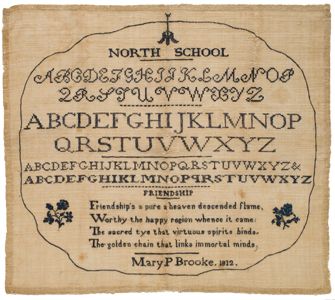 NORTH SCHOOL
ABCDEFGHIJKLMNOP
QRSTUVWXYZ
ABCDEFGHIJKLMNOP
QRSTUVWXYZ
ABCDEFGHIJKLMNOPQRSTUVWXYZ&
ABCDEFGHIJKLMNOPQRSTUVWXYZ
FRIENDSHIP
Friendship's a pure a heaven descended flame,
Worthy the happy region whence it came:
The sacred tye that virtuous spirits binds.
The golden chain that links immortal minds.
Mary P Brooke. 1812.